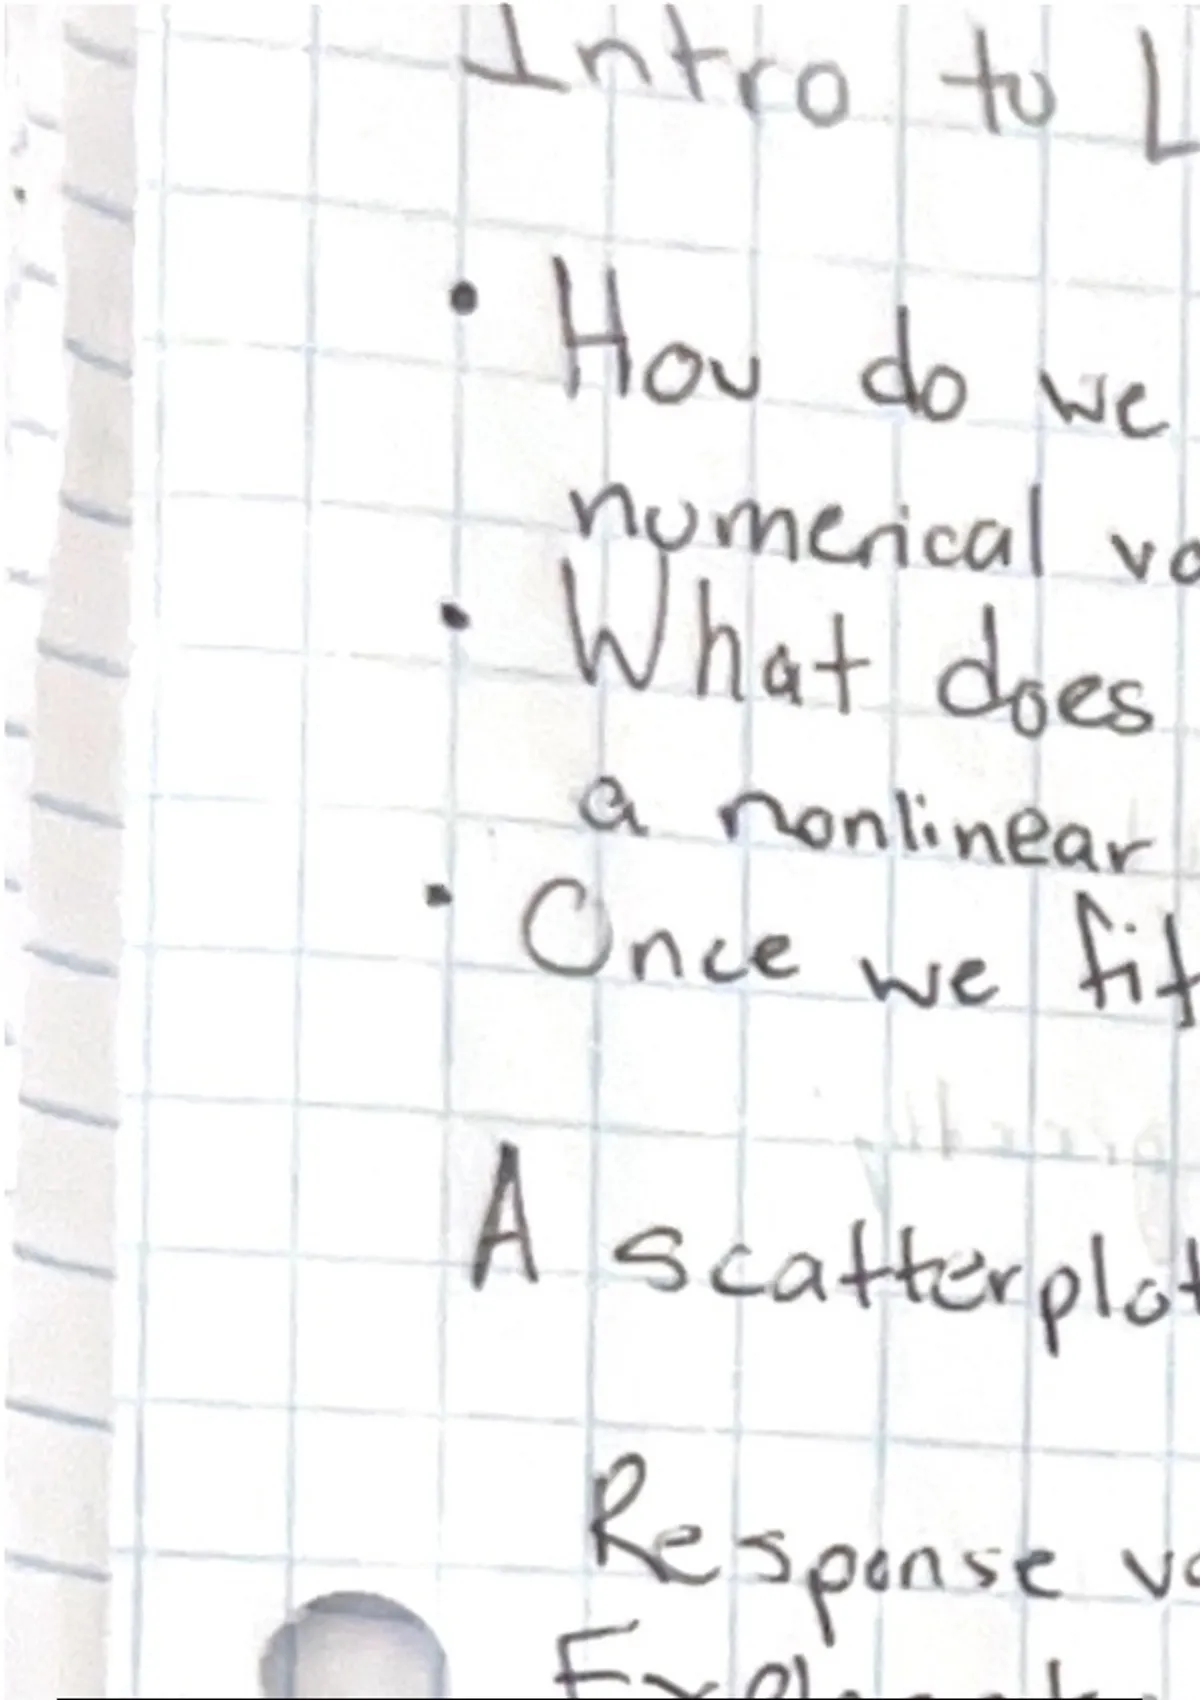 Intro to L
• How do we
numerical va
• What does
a nonlinear
• Once we fit
A scatterplot
Response va